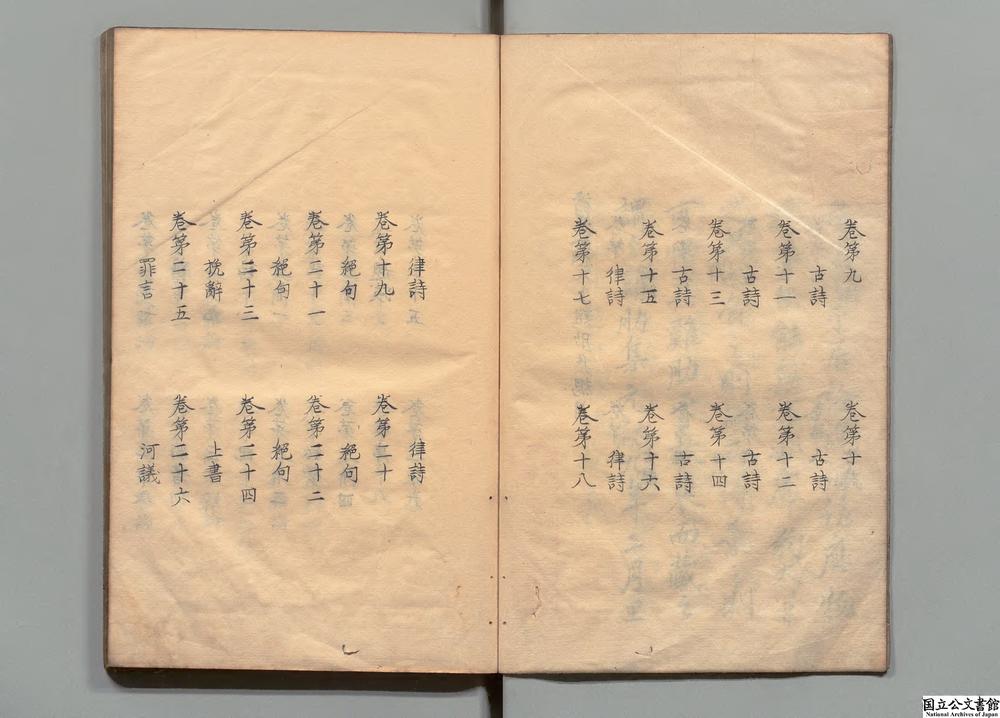 卷第九　卷第十
古詩　古詩
卷第十一　卷第十二
古詩　古詩
卷第十三　卷第十四
古詩　古詩
卷第十五　卷第十六
律詩　律詩
卷第十七　卷第十八
律詩　律詩
卷第十九　卷第二十
絕句　絕句
卷第二十一　卷第二十二
絕句　絕句
卷第二十三　卷第二十四
挽辭　上書
卷第二十五　卷第二十六
罪言　河議
国立公文書館
National Archives of Japan